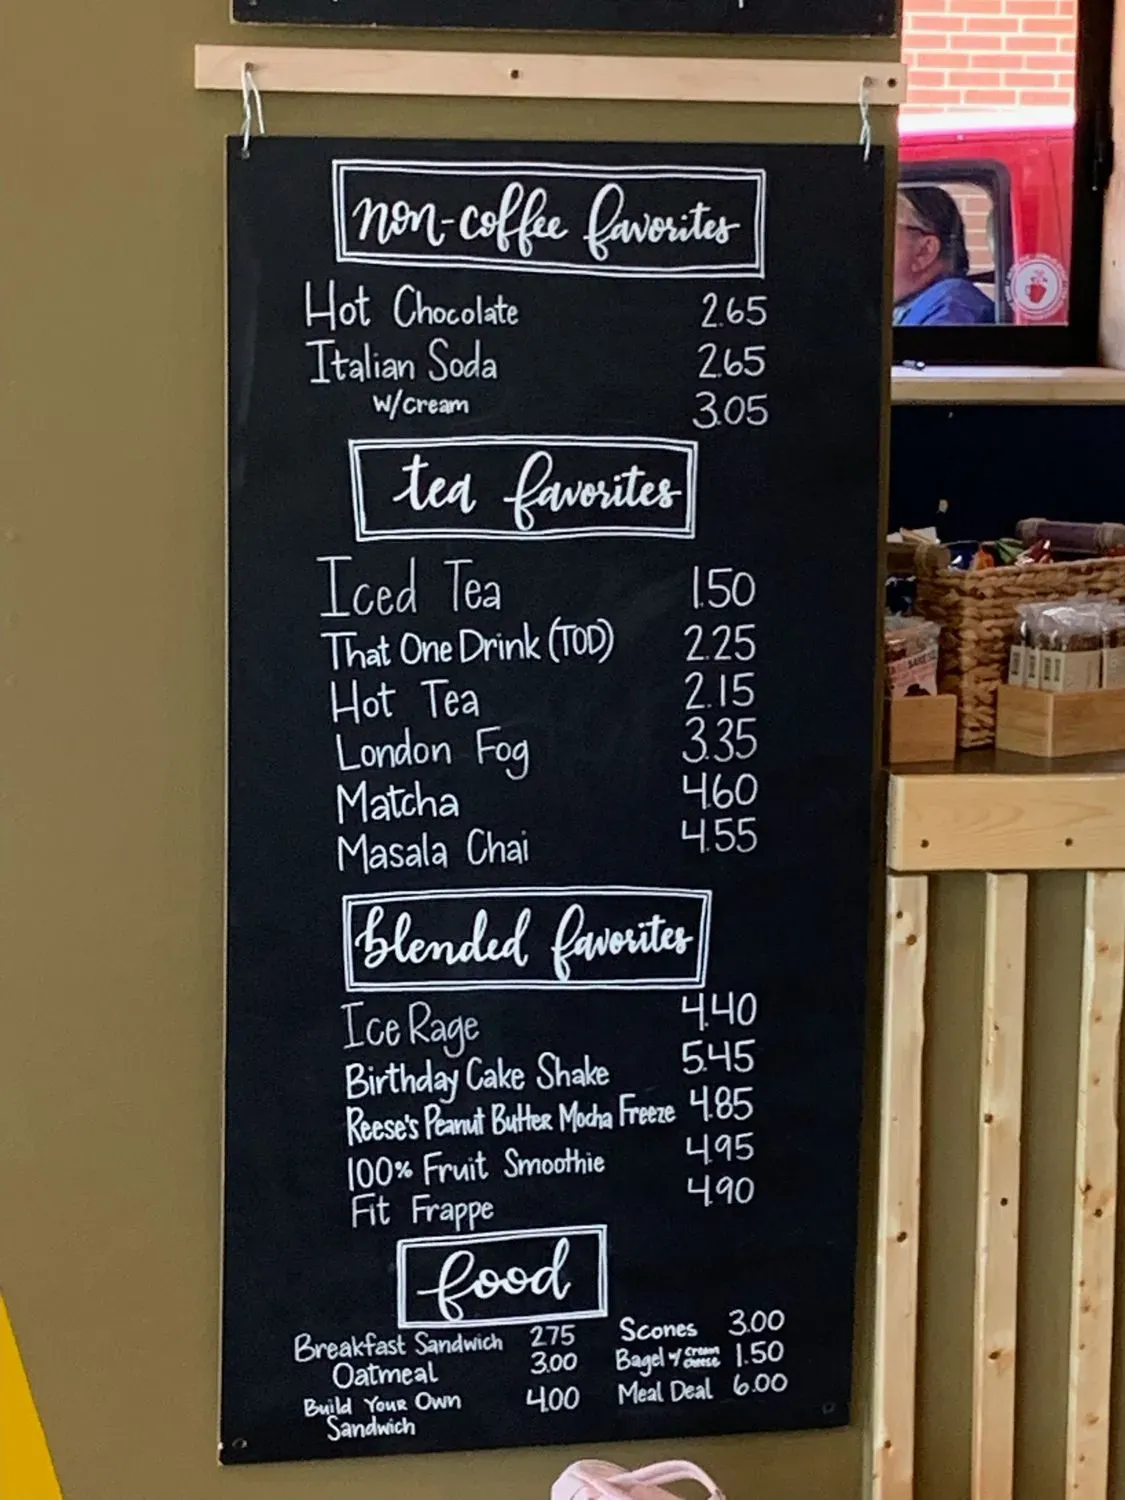 non-coffee favorites
Hot Chocolate 2.65
Italian Soda 2.65
w/cream 3.05
tea favorites
Iced Tea 1.50
That One Drink (TOD) 2.25
Hot Tea 2.15
London Fog 3.35
Matcha 4.60
Masala Chai 4.55
blended favorites
Ice Rage 4.40
Birthday Cake Shake 5.45
Reese's Peanut Butter Mocha Freeze 4.85
100% Fruit Smoothie 4.95
Fit Frappe 4.90
food
Breakfast Sandwich 2.75 Scones 3.00
Oatmeal 3.00 Bagel w/ cream cheese 1.50
Build Your Own Sandwich 4.00 Meal Deal 6.00